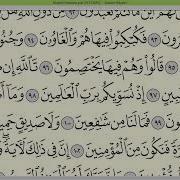 فَكُبْكِبُوا۟ فِيهَا هُمْ وَٱلْغَاوُۥنَ ٩٤ وَجُنُودُ
قَالُوا۟ وَهُمْ فِيهَا يَخْتَصِمُونَ ٩٦ تَٱللَّهِ إِن
إِذْ نُسَوِّيكُم بِرَبِّ ٱلْعَٰلَمِينَ ٩٨ وَمَآ
فَمَا لَنَا مِن شَٰفِعِينَ ١٠٠ وَلَا صَدِيقٍ حَمِيمٍ
فَنَكُونَ مِنَ ٱلْمُؤْمِنِينَ ١٠٢ إِنَّ فِى ذَٰلِكَ لَءَايَةً